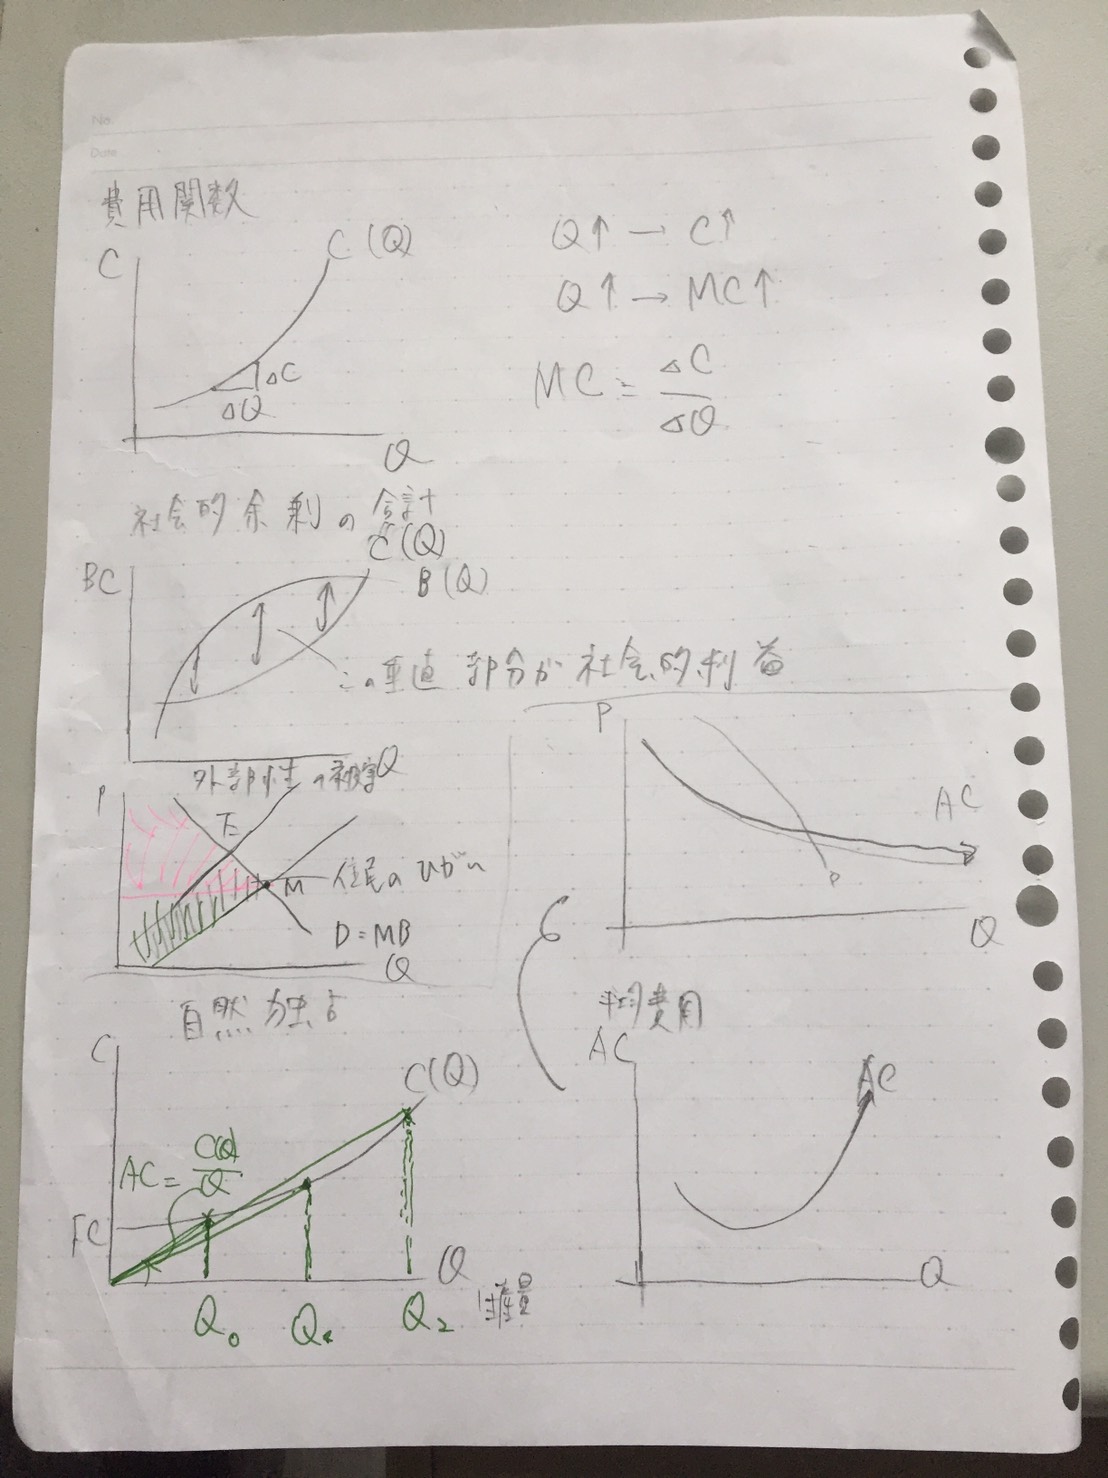 No.
Date
費用関数
C
C(Q)
ΔC
ΔQ
Q
Q↑ → C↑
Q↑ → MC↑
MC = ΔC/ΔQ
社会的余剰の合計
BC
C(Q)
B(Q)
この垂直部分が社会的利益
Q
外部性の
P
E
M
住民のひがい
D=MB
Q
P
AC
D
Q
自然独占
C
C(Q)
AC = C(Q)/Q
FC
Q
Q₀
Q₂
平均費用
AC
AC
Q